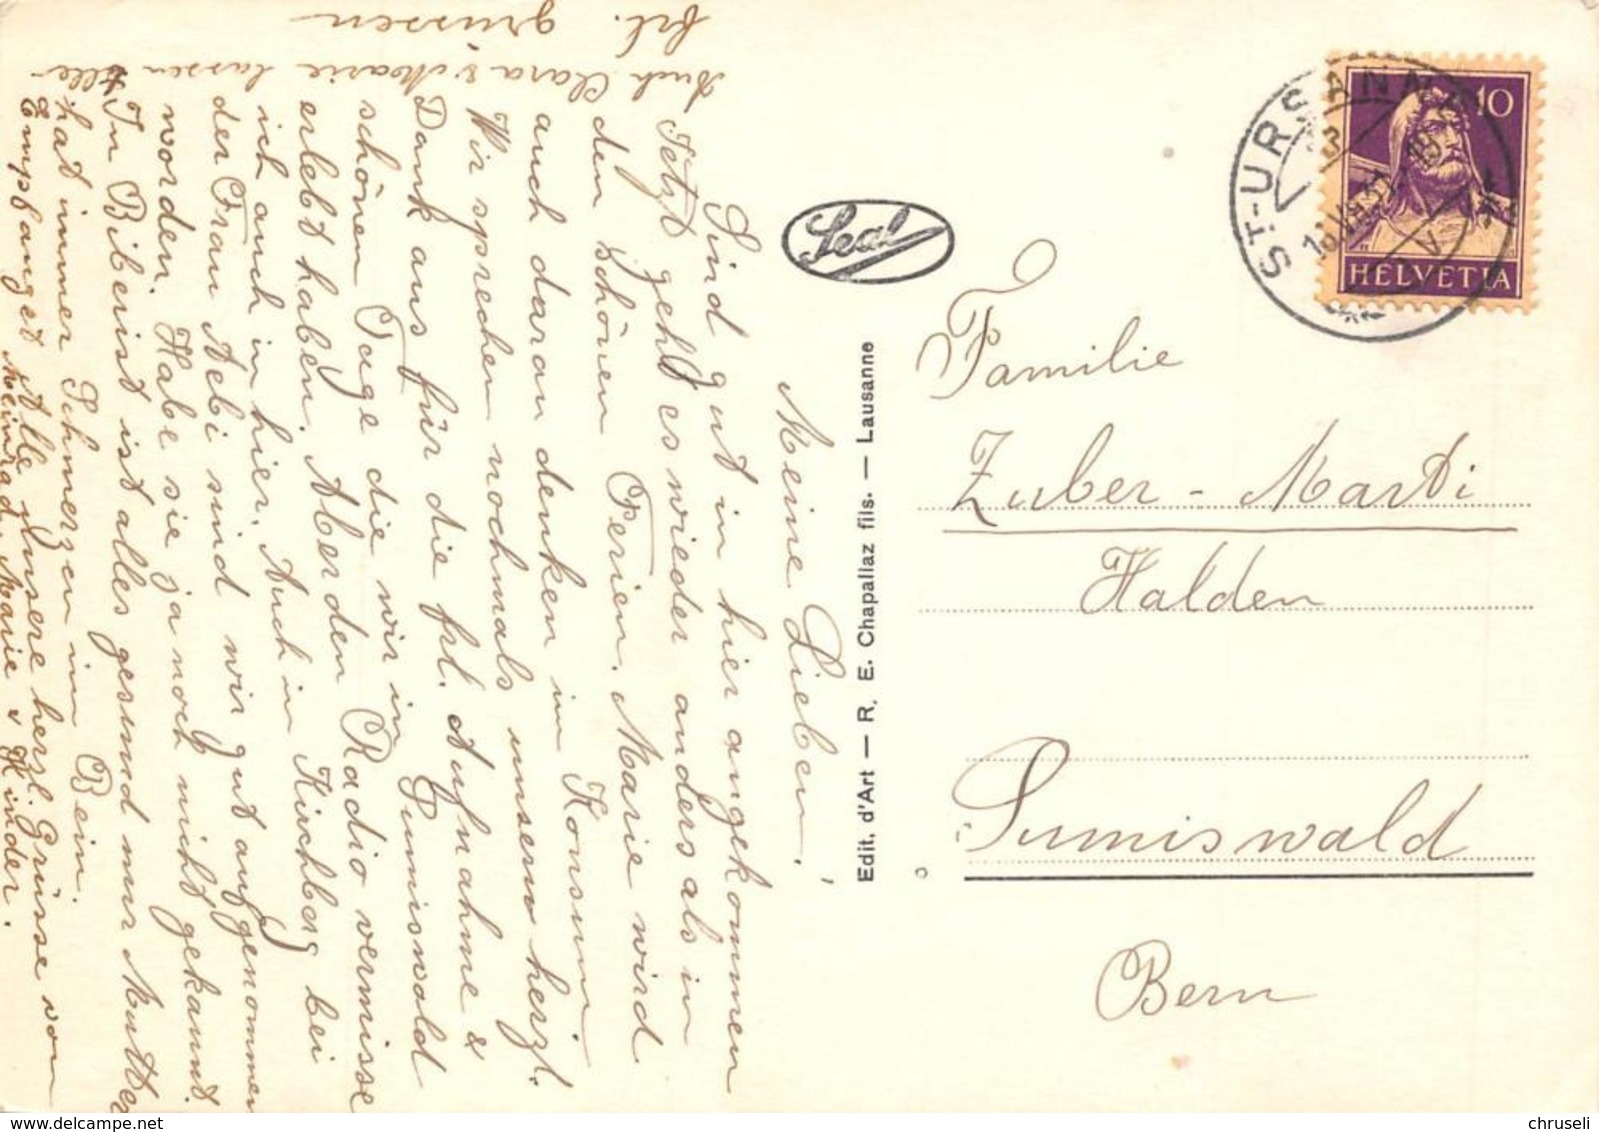 Meine Lieben!
Sind gut in hier angekommen
Jetzt geht es wieder anders als in
den schönen Ferien. Marie wird
auch daran denken im Konsum
Wir sprechen nochmals unsern herzl.
Dank aus für die frl. Aufnahme &
schönen Tage die wir in Sumiswald
erlebt haben. Aber den Radio vermisse
ich auch in hier. Auch in Kirchberg bei
der Frau Aebi sind wir gut aufgenommen
worden. Habe sie ja noch nicht gekannt.
In Biberist ist alles gesund nur Mutter
hat immer Schmerzen im Bein.
Empfanget Alle unsere herzl. Grüsse von
Meinrad, Marie & Kinder.
Auch Clara & Marie lassen Alle
frl. grüssen
Seal
Edit. d'Art — R. E. Chapallaz fils. — Lausanne
ST-URSANNE
HELVETIA
10
Familie
Zuber - Marti
Halden
Sumiswald
Bern
chruseli